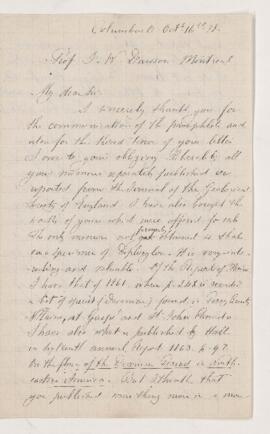 Columbus O. Oct 16th 71.
Prof. J. W. Dawson Montreal
My dear Sir
I sincerely thank you for
the communication of the pamphlets and
also for the kind tenor of your letter
I owe to your obliging
your memoirs separately published
reported from the Journal of the Geological
Society of England. I have also bought the
of yours which were offered for sale
The only memoir not formerly obtained is that
on Spec. men of Diploxylon. It is very inter-
esting and valuable. Of the Report of Maine
I have that of 1861 when p. 248 is
a list of species (Devonian) found in Perry County
Maine, at Gaspé and St. John
I have also what is published by Hall
in sixteenth annual Report 1863. p. 97.
On the flora of the Devonian Period in North
eastern America. But I think that
you published some thing more in a more